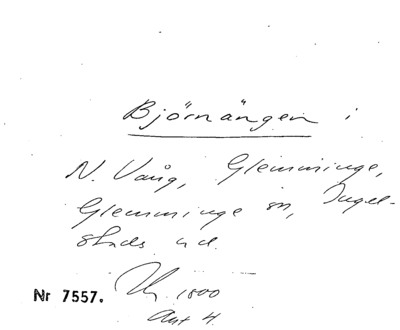 Björnängen i
N. Vång, Glemminge,
Glemminge sn, Ingel-
stads hd.
Nr 7557. 1800
Akt 4.